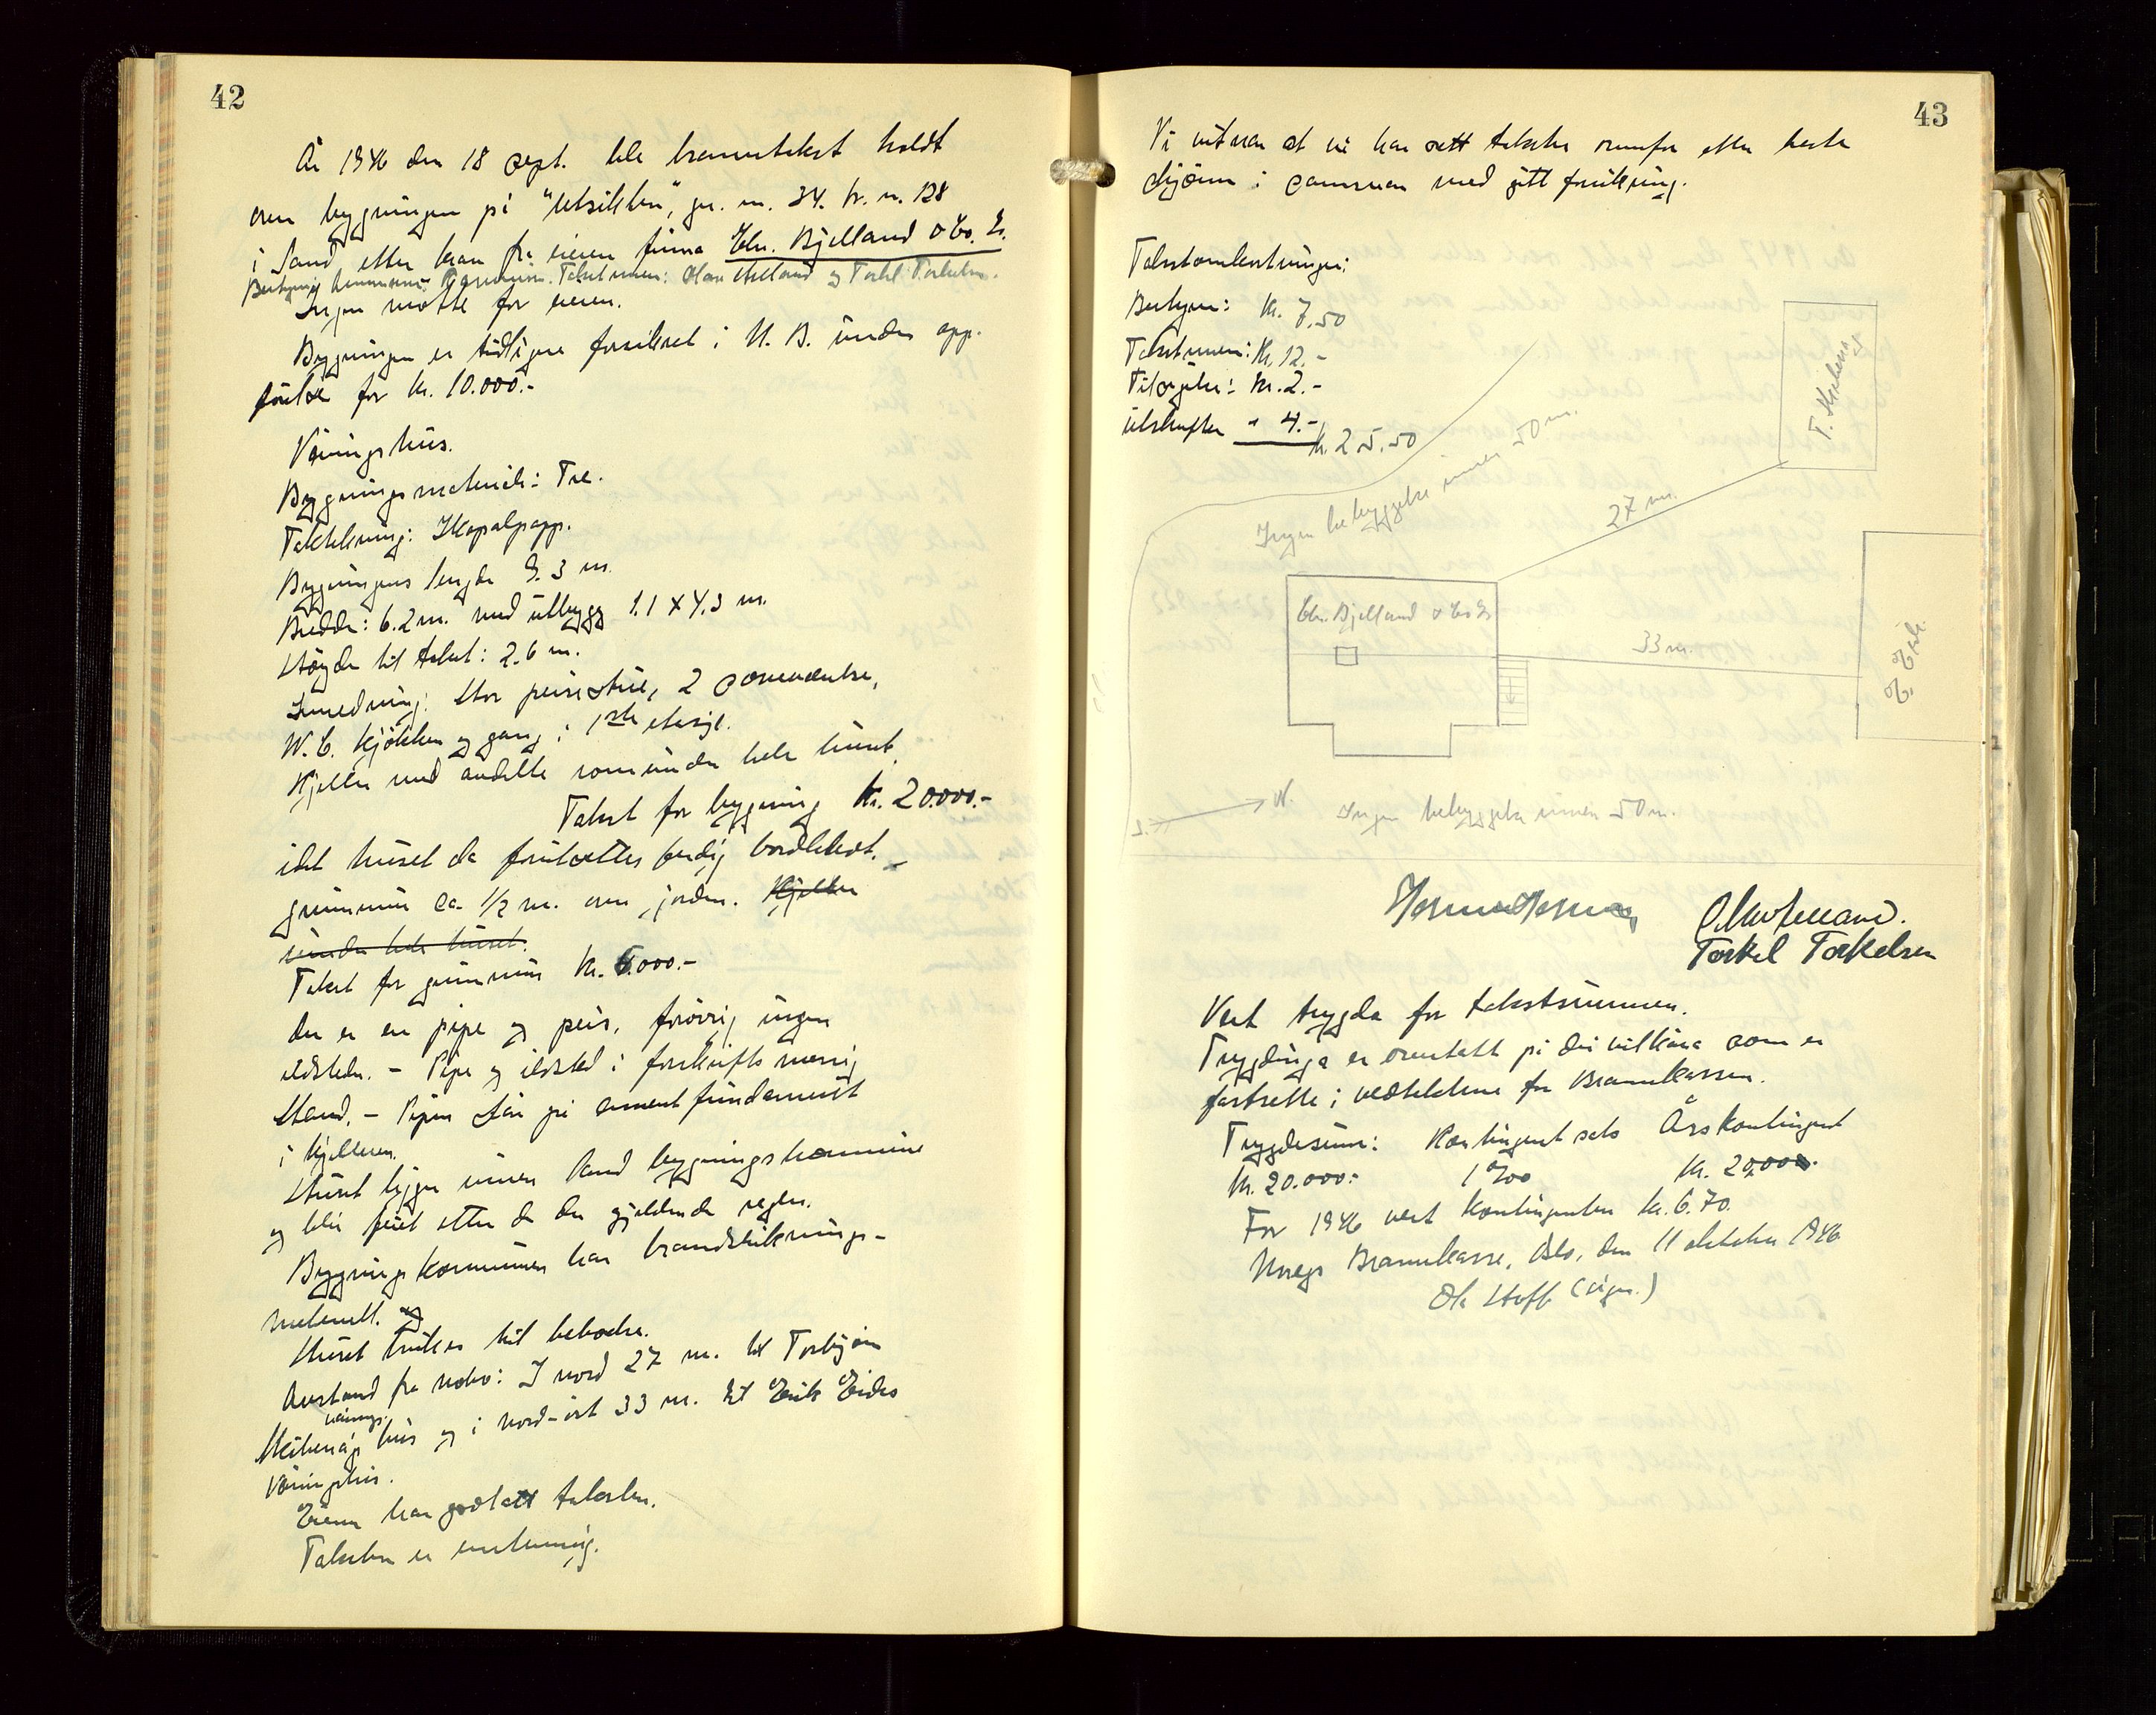 42
År 1946 den 18 sept. ble branntakst holdt
over bygningen på "Utsikten", gr. nr. 34. br. nr. 128
i Sand etter krav fra eieren firma Chr. Bjelland & Co. Es.
Takstmenn: Olav og Torkel Torkelsen.
Ingen møtte for eieren.
Bygningen er tidligere forsikret i N. B. under opp-
förelse for kr. 10.000.-
Våningshus.
Bygningsmateriale: Tre.
Taktekning: Skapalpapp.
Bygningens lengde 9.3 m.
Bredde: 6.2 m. med utbygg 1.1 X 4.3 m.
Høyde til taket: 2.6 m.
Innredning: Stor peisestue, 2 soveværelser,
W.C. kjøkken og gang i 1ste etasje.
Kjeller med avdelte rom under hele huset.
Takst for bygning kr. 20.000.-
idet huset da forutsettes ferdig bordkledt.
grunnmur ca. 1/2 m. over jorden. Kjeller
under hele huset.
Takst for grunnmur kr. 5.000.-
Der er en pipe og peis, forøvrig ingen
ildsteder. - Pipe og ildsted i forskriftsmessig
stand. - Pipen står på sementfundament
i kjelleren.
Huset ligger innen Sand bygningskommune
og blir feiet etter de der gjeldende regler.
Bygningskommunen har brandslukknings-
materiell. og
Huset brukes til beboelse.
Avstand fra nabo: I nord 27 m. til Torbjørn
vånings-
hus og i nord-øst 33 m. til Erik Eides
våningshus.
Eieren har godtatt taksten.
Taksten er enstemmig.
43
Vi vitner at vi har sett taksten ovenfor etter beste
skjønn i samsvar med gitt forsikring.
Takstomkostninger:
Bestyrer: kr. 7.50
Takstmenn: kr. 12.-
Tilsigelse: kr. 2.-
utskrifter " 4.-
kr. 25.50
T.
Ingen bebyggelse innen 50 m.
27 m.
Chr. Bjelland & Co Es
33 m.
E. Eide
S.
N.
Ingen bebyggelse innen 50 m.
Torkel Torkelsen
Vert trygda for takstsummen.
Trygdinga er overtatt på dei vilkåra som er
fastsette i vedtektene for Brannkassen.
Trygdesum: Kontingentsats Årskontingent
kr. 20.000.- 1 ‰ kr. 20,00.
For 1946 vert kontingenten kr. 6.70.
Noregs Brannkasse, Oslo, den 11 oktober 1946
(sign.)